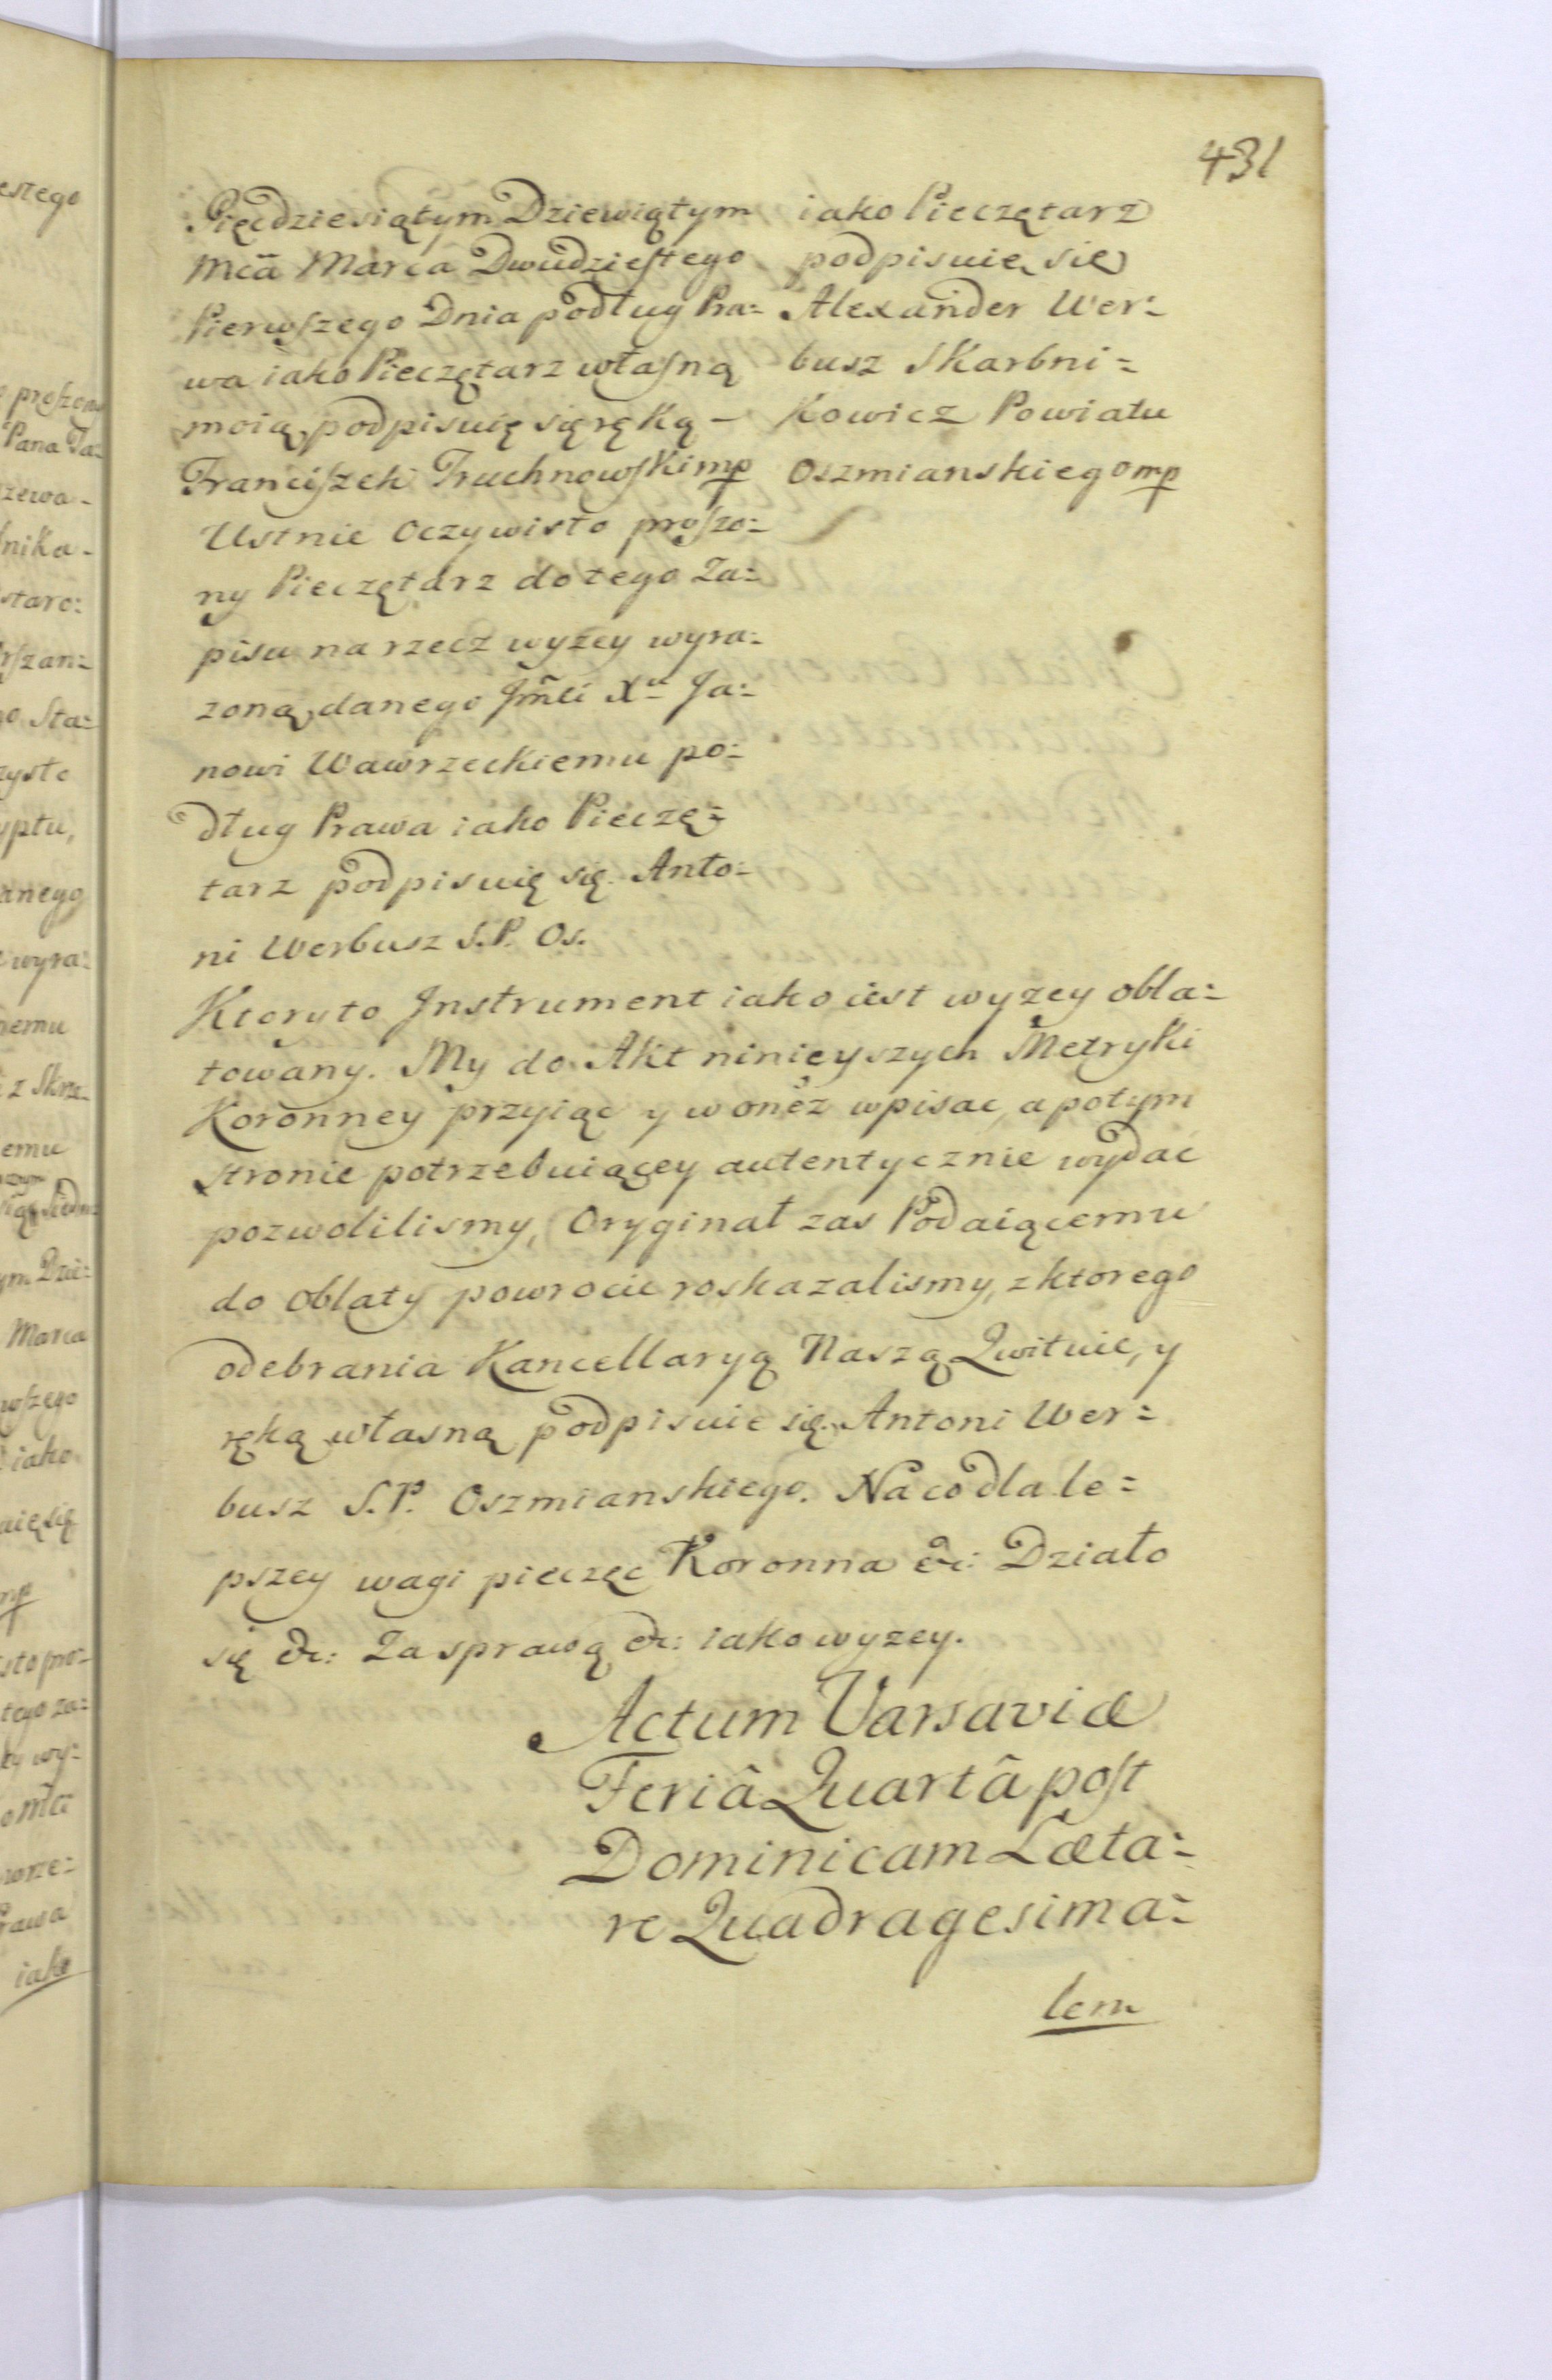 431
Pięcdziesiątym Dziewiątym
Mcã Marca Dwudziestego
Pierwszego Dnia podług Pra=
wa iako Pieczętarz własną
moią podpisuię się ręką –
Franciszek Truchnowski mp
Ustnie Oczywisto proszo=
ny Pieczętarz do tego Za=
pisu na rzecz wyzey wyra=
zoną danego Jm̃ci Xu Ja=
nowi Wawrzeckiemu po=
dług Prawa iako Pieczę=
tarz podpisuię się. Anto=
ni Werbusz S.P. Os.
iako Pieczętarz
podpisuię się
Alexander Wer=
busz Skarbni=
kowicz Powiatu
Oszmianskiego mp
Ktoryto Instrument iako iest wyzey obla=
towany. My do Akt ninieyszych Metryki
Koronney przyiąc y w onez wpisac, a potym
stronie potrzebuiącey autentycznie wydac
pozwolilismy, Oryginał zas Podaiącemu
do Oblaty powrocic roskazalismy, z ktorego
odebrania Kancellaryą Naszą Qwituie, y
ręką własną podpisuie się. Antoni Wer=
busz S.P. Oszmianskiego. Na co dla le=
pszey wagi pieczęc Koronna &c: Działo
się &c: Za sprawą &c: iako wyzey.
Actum Varsaviæ
Feriâ Quartâ post
Dominicam Læta=
re Quadragesima=
lem